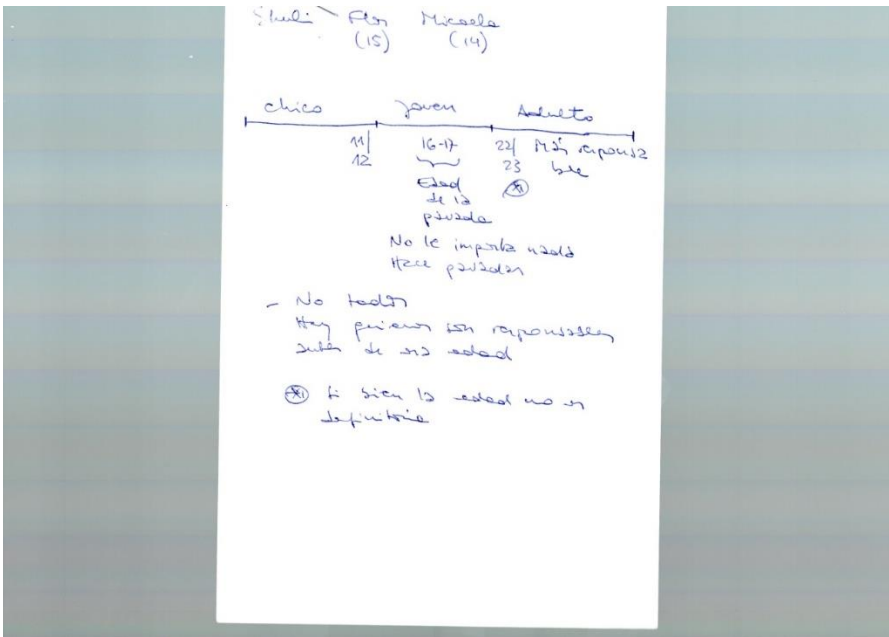 Shuli Flor Micaela
(15) (14)
chico joven Adulto
11/ 16-17 22/ Más responsa
12 23 ble
Edad
de la
pavada
No le importa nada
Hace pavadas
- No todos
Hay quienes son responsables
antes de esa edad
Si bien la edad no es
definitoria